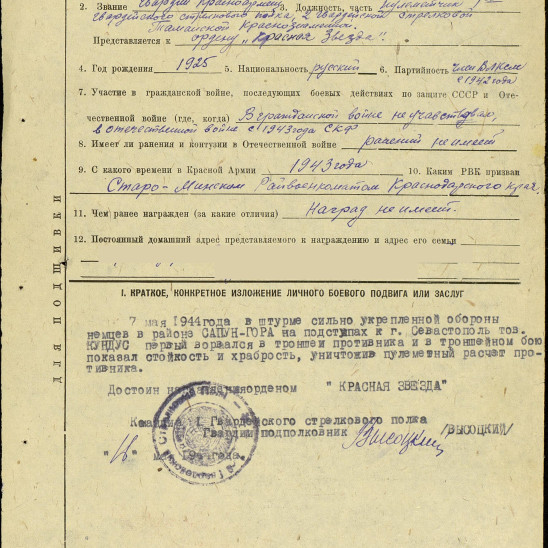 2. Звание гвардии красноармеец 3. Должность, часть пулеметчик 1
гвардейского стрелкового полка, 2 гвардейской стрелковой
Таманской Краснознаменной
Представляется к ордену „Красная Звезда"
4. Год рождения 1925 5. Национальность русский 6. Партийность член ВЛКСМ
с 1942 года
7. Участие в гражданской войне, последующих боевых действиях по защите СССР и Оте-
чественной войне (где, когда) В гражданской войне не участвовал,
в отечественной войне с 1943 года СКФ
8. Имеет ли ранения и контузии в Отечественной войне ранений не имеет
9. С какого времени в Красной Армии 1943 года 10. Каким РВК призван
Старо-Минским Райвоенкоматом Краснодарского края.
11. Чем ранее награжден (за какие отличия) Наград не имеет.
12. Постоянный домашний адрес представляемого к награждению и адрес его семьи
ДЛЯ ПОДШИВКИ
I. КРАТКОЕ, КОНКРЕТНОЕ ИЗЛОЖЕНИЕ ЛИЧНОГО БОЕВОГО ПОДВИГА ИЛИ ЗАСЛУГ
7 мая 1944 года в штурме сильно укрепленной обороны
немцев в районе САПУН-ГОРА на подступах к г. Севастополь тов.
КУНДУС первый ворвался в траншеи противника и в траншейном бою
показал стойкость и храбрость, уничтожив пулеметный расчет про-
тивника.
Достоин награждения орденом "КРАСНАЯ ЗВЕЗДА"
Командир 1 Гвардейского стрелкового полка
Гвардии подполковник Высоцкий /ВЫСОЦКИЙ/
"16" мая 194 года